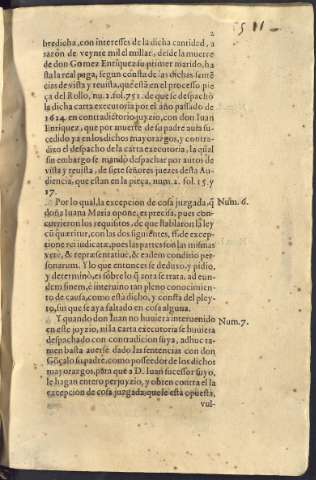 511
2
bredicha, con interesses de la dicha cantidad, a
razon de veynte mil el millar, desde la muerte
de don Gomez Enriquez su primer marido, ha
sta la real paga, segun consta de las dichas senté
cias de vista y reuista, que está en el processo pie
ça del Rollo, nu. 2. fol. 752. de que se despachò
la dicha carta executoria por el año passado de
1614. en contradictorio juyzio, con don Iuan
Enriquez, que por muerte de su padre auia su-
cedido ya en los dichos mayorazgos, y contra-
dixo el despacho de la carta executoria, la qual
sin embargo se mandò despachar por autos de
vista y reuista, de siete señores juezes desta Au-
diencia, que estan en la pieça, num. 2. fol. 15. y
17.
Por lo qual, la excepcion de cosa juzgada, q̃
doña Iuana Maria opone, es precisa, pues con-
currieron los requisitos, de que hablaron la ley
cũ quæritur, con las dos siguientes, ff. de excep-
tione rei iudicatæ, pues las partes son las mismas
verè, & repræsentatiuè, & eadem conditio per-
sonarum. Y lo que entonces se deduxo, y pidio,
y determinò, es sobre lo q̃ aora se trata. ad eun-
dem finem, è interuino tan pleno conocimien-
to de causa, como està dicho, y consta del pley-
to, sin que se aya faltado en cosa alguna.
Num. 6.
Y quando don Iuan no huuiera interuenido
en este juyzio, ni la carta executoria se huuiera
despachado con contradicion suya, adhuc ta-
men basta auerse dado las sentencias con don
Gõçalo su padre, como posseedor de los dichos
mayorazgos, para que a D. Iuan sucessor suyo,
le hagan entero perjuyzio, y obsten contra el la
excepcion de cosa juzgada, que le està opuesta,
Num. 7.
vul-